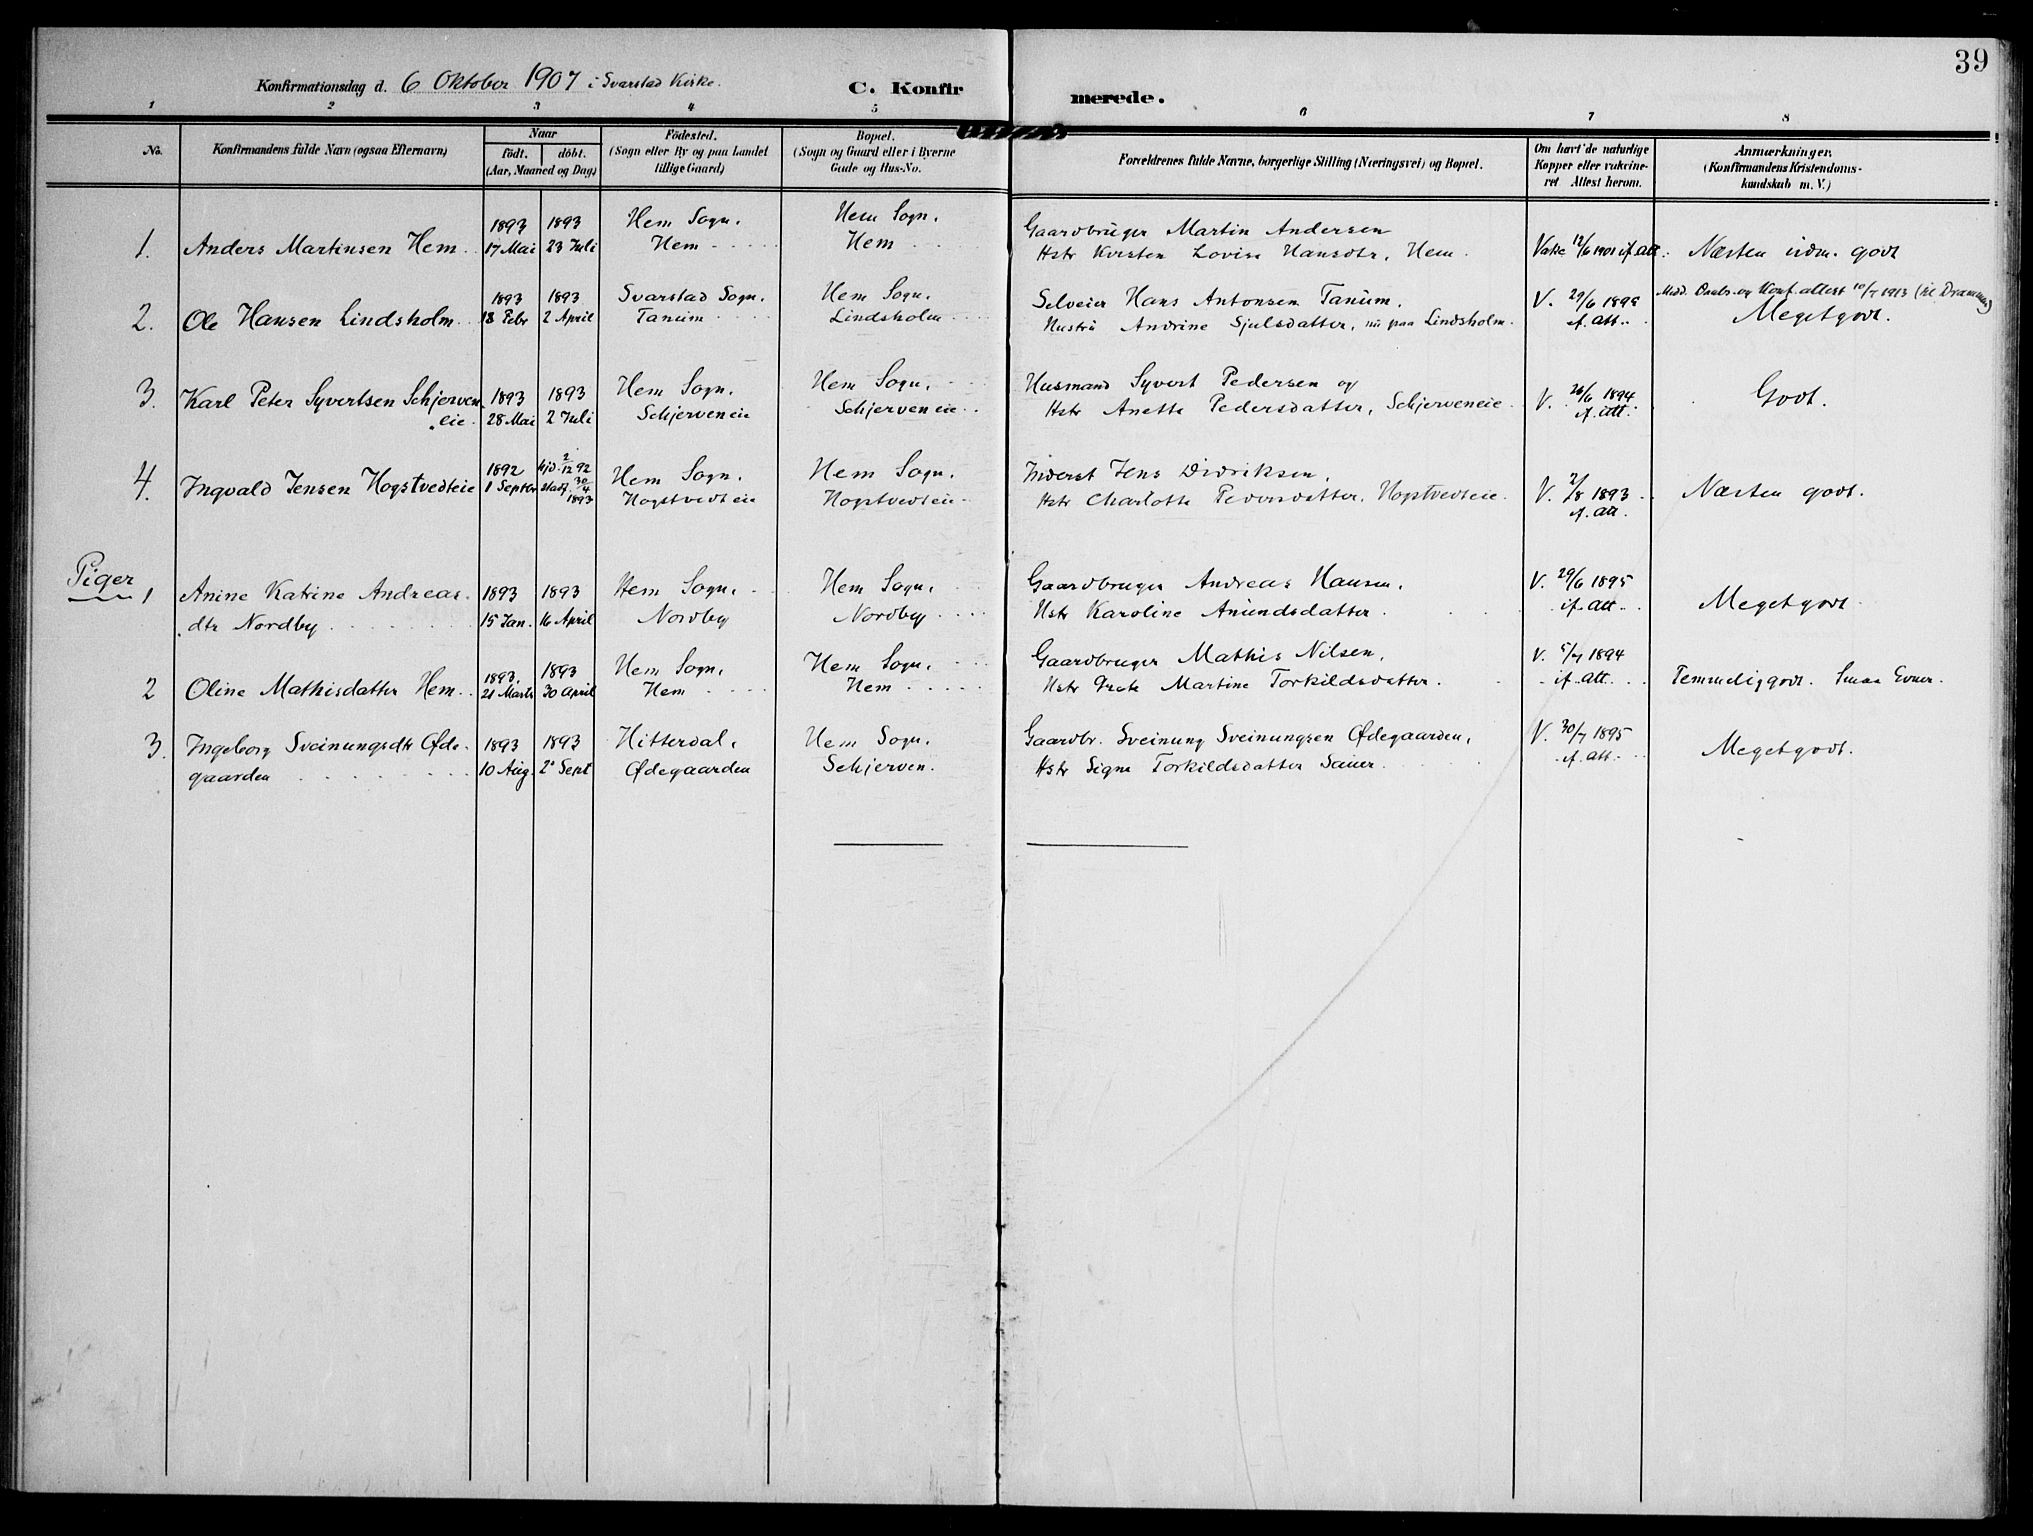 39
Konfirmationsdag d. 6 Oktober 1907 i Svarstad Kirke.
C. Konfirmerede.
1 2 3 4 5 6 7 8
No.
Konfirmandens fulde Navn (ogsaa Efternavn)
Naar
födt. döbt.
(Aar, Maaned og Dag)
Födested.
(Sogn eller By og paa Landet
tillige Gaard)
Bopæl.
(Sogn og Gaard eller i Byerne
Gade og Hus-No.
Forældrenes fulde Navne, borgerlige Stilling (Næringsvei) og Bopæl.
Om havt de naturlige
Kopper eller vakcine-
ret Attest herom.
Anmærkninger.
(Konfirmandens Kristendoms-
kundskab m. V.)
1893 1893 Hem Sogn. Hem Sogn. Gaardbruger Martin Andersen
1. Anders Martinsen Hem 17 Mai 23 Juli Hem Hem Hstr Kirsten Lovise Hansdtr, Hem. Vakc 12/6 1901 if. att. Næsten udm. godt
1893 1893 Svarstad Sogn. Hem Sogn. Selveier Hans Antonsen Tanum. V. 29/6 1898 Medd. Daabs- og Konf. attest 10/7 1913 (til Drammen)
2. Ole Hansen Lindsholm 18 Febr 2 April Tanum Lindsholm Hustru Andrine Sjulsdatter, nu paa Lindsholm. if. att. Megetgodt.
3. Karl Peter Syvertsen Schjerven 1893 1893 Hem Sogn. Hem Sogn. Husmand Syvert Pedersen og V. 26/6 1894 Godt.
eie. 28 Mai 2 Juli Schjerveneie Schjerveneie Hstr Anette Pedersdatter, Schjerveneie if. att.
1892 hjd. 2/12 92 Hem Sogn. Hem Sogn. Inderst Jens Didriksen,
4. Ingvald Jensen Hogstvedteie 1 Septbr stadf. 30/4 1893 Hogstvedteie Hogstvedteie Hstr Charlotte Pedersdatter, Hogstvedteie. V. 2/8 1893 Næsten godt.
if. att.
Piger
1 Anine Katrine Andreas- 1893 1893 Hem Sogn. Hem Sogn. Gaardbruger Andreas Hansen. V. 29/6 1895
dtr Nordby 15 Jan. 16 April Nordby Nordby Hstr Karoline Amundsdatter. if. att. Megetgodt.
1893. 1893 Hem Sogn. Hem Sogn. Gaardbruger Mathis Nilsen. V. 5/7 1894
2 Oline Mathisdatter Hem 21 Marts 30 April Hem Hem Hstr Grete Martine Torkildsdatter. if. att. Temmeliggodt. Smaa Evner.
3. Ingeborg Sveinungsdtr Øde- 1893 1893 Hitterdal. Hem Sogn. Gaardbr. Sveinung Sveinungsen Ødegaarden, V. 30/7 1895
gaarden 10 Aug. Sept Ødegaarden Schjerven. Hstr Signe Torkildsdatter Sauer if. att. Megetgodt.